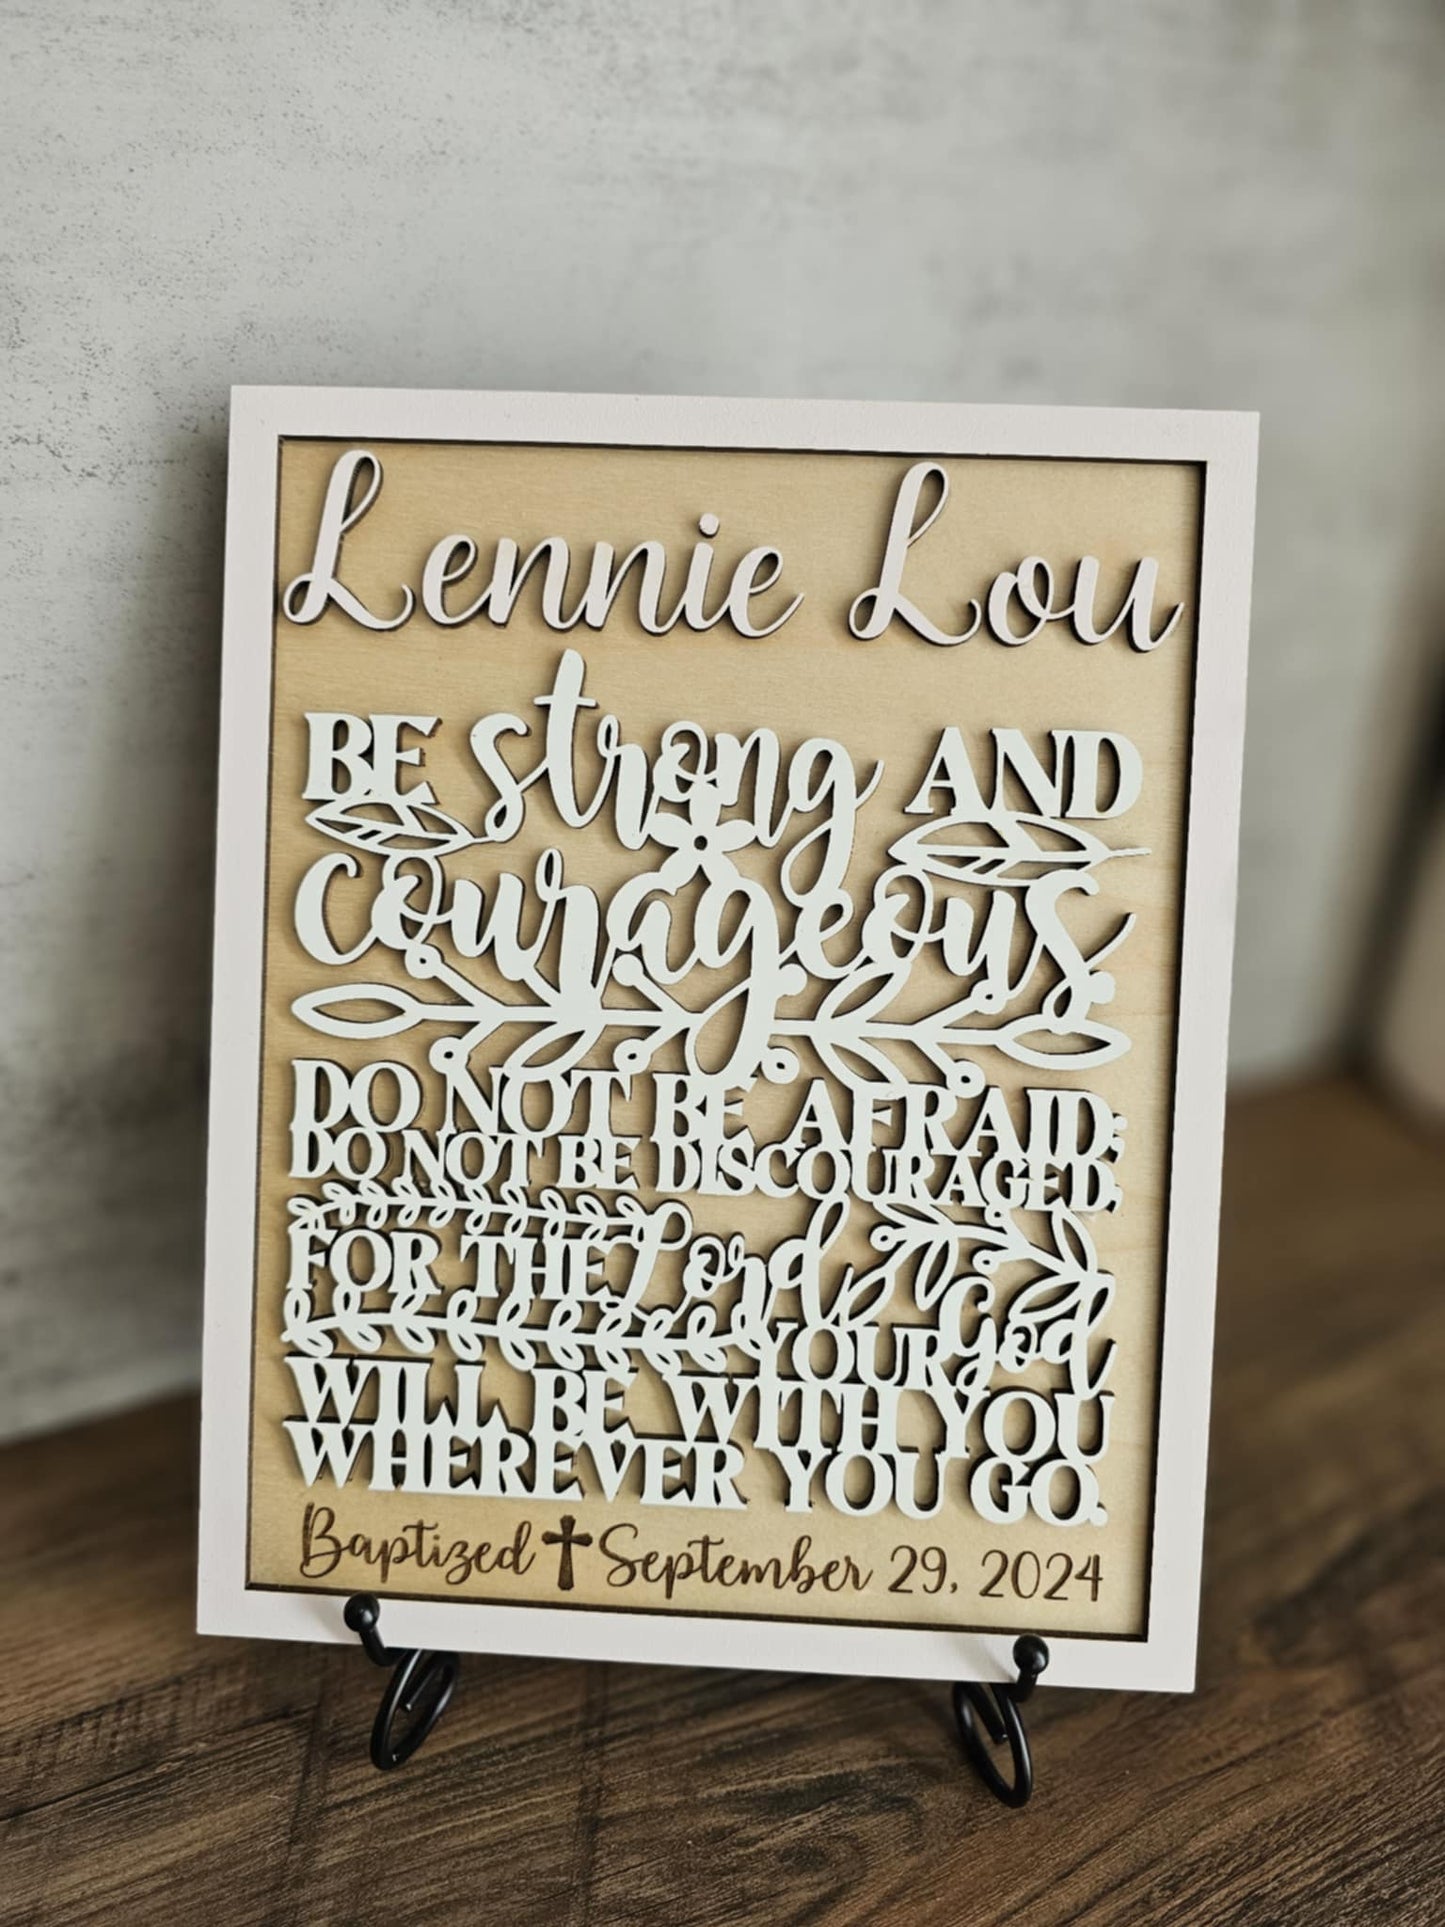 Lennie Lou
BE strong AND
courageous
DO NOT BE AFRAID;
DO NOT BE DISCOURAGED,
FOR THE Lord
YOUR God
WILL BE WITH YOU
WHEREVER YOU GO.
Baptized September 29, 2024